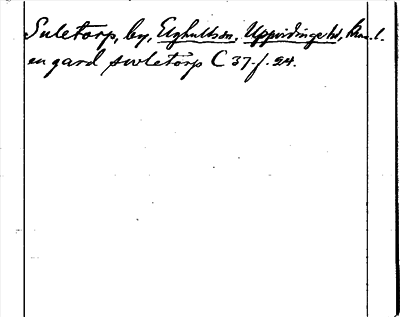 Suletorp, by, Elghults sn, Uppvidinge hd, Kron. l.
en gard swletörp C 37 f. 24.